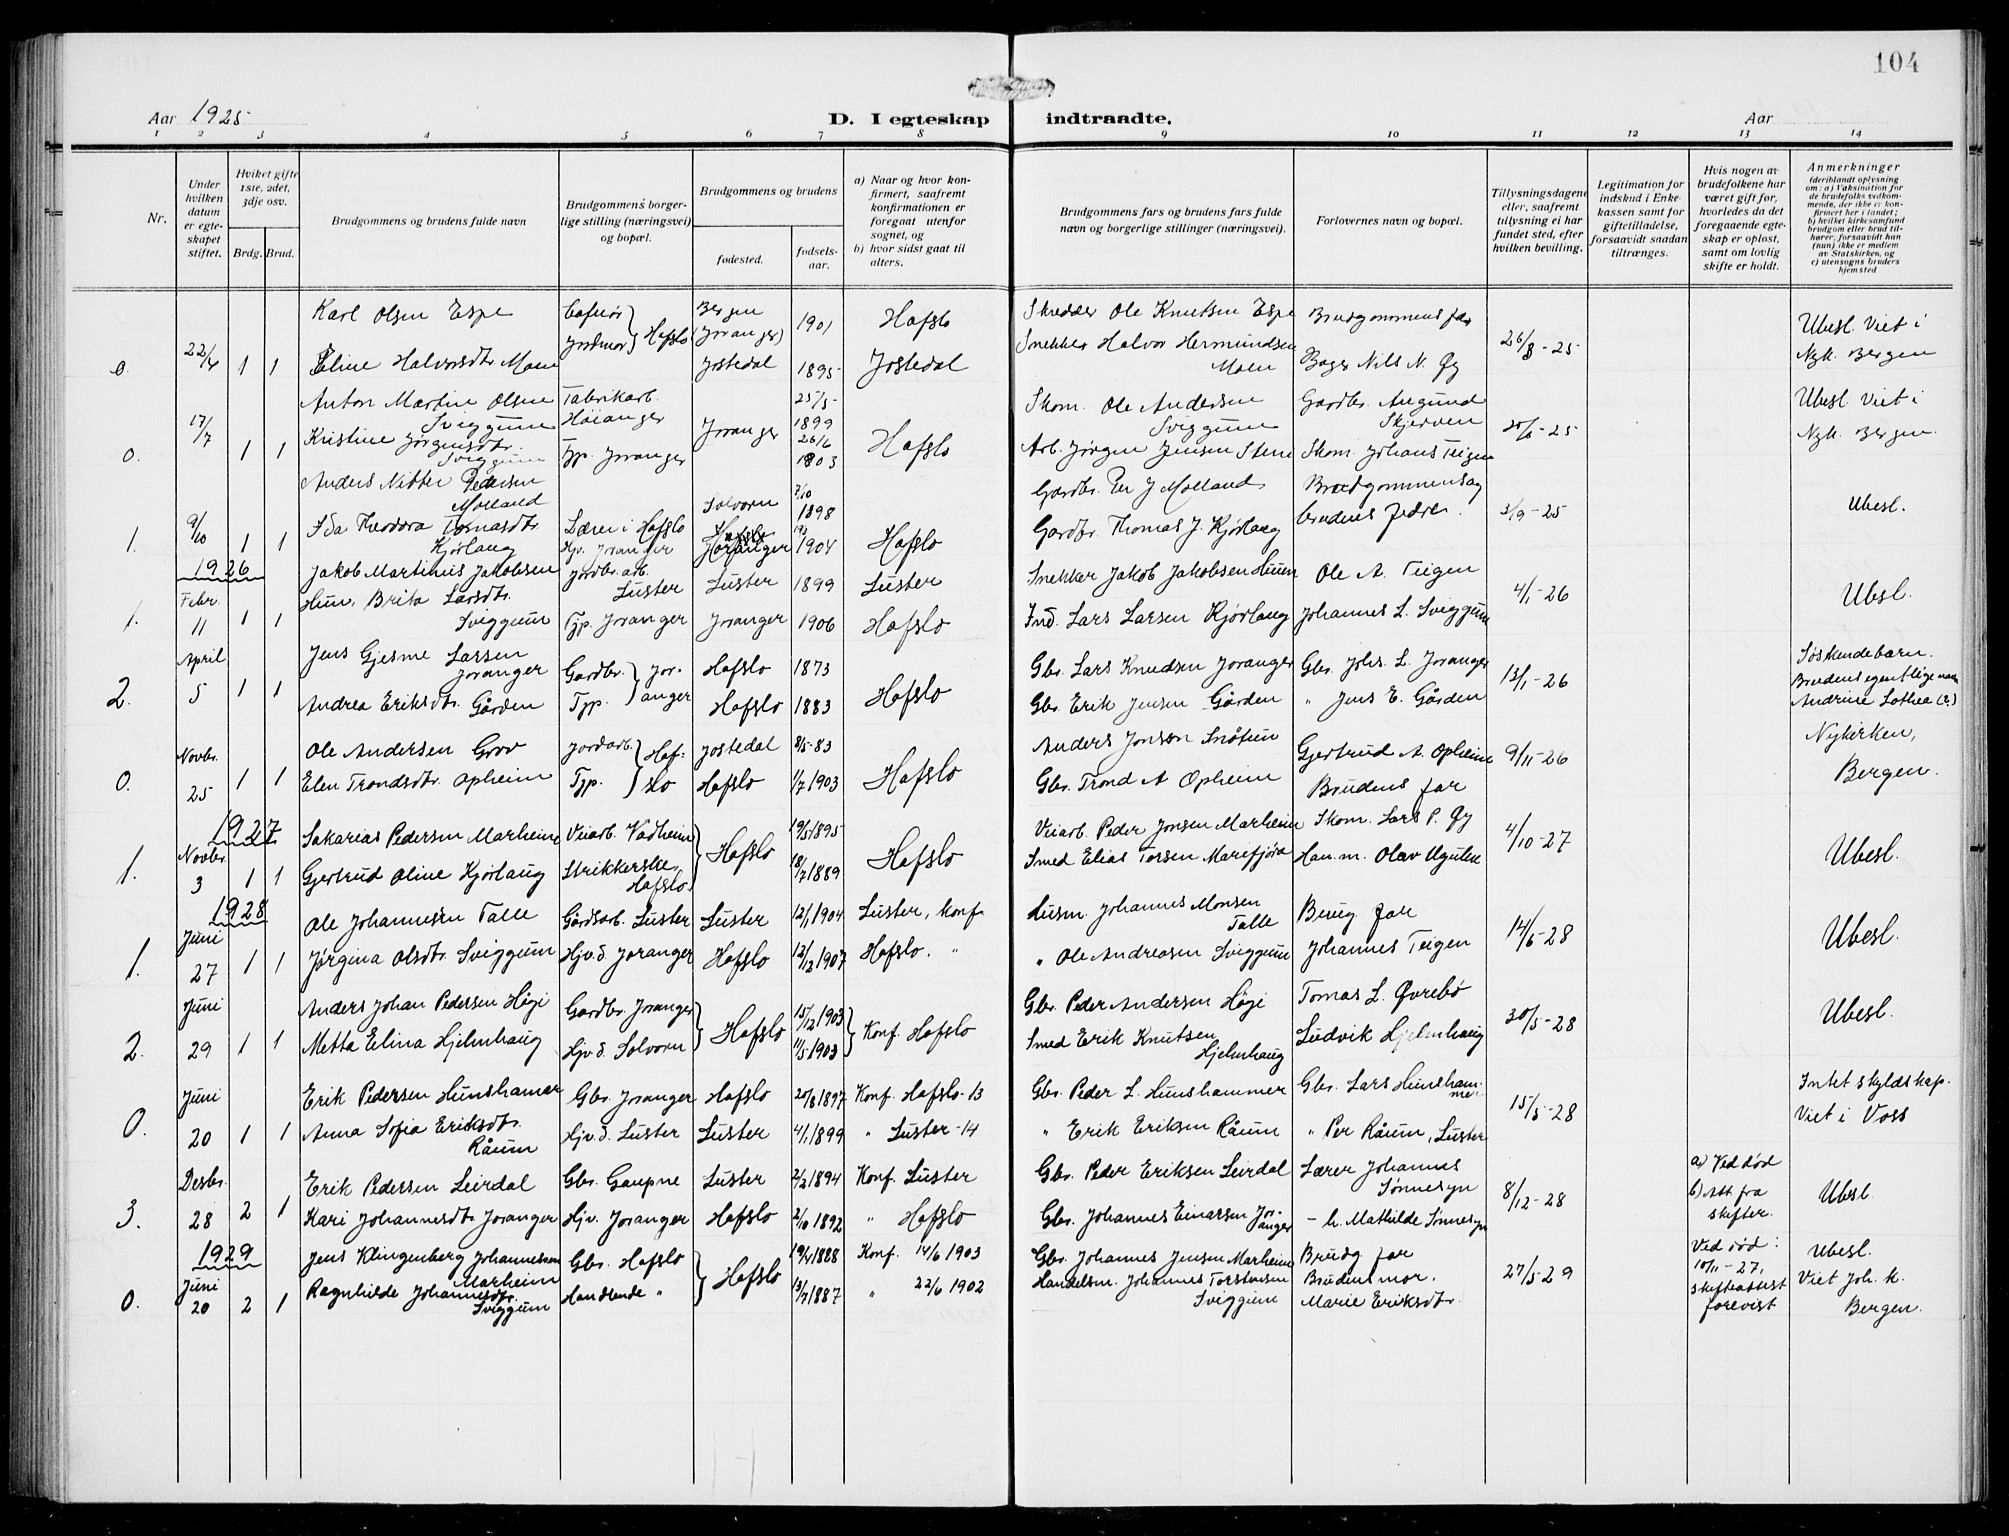 104
Aar 1925
D. I egteskap indtraadte.
Aar
1 2 3 4 5 6 7 8 9 10 11 12 13 14
Nr.
Under hvilken datum er egteskapet stiftet.
Hviket gifte 1ste, 2det, 3dje osv.
Brdg. Brud.
Brudgommens og brudens fulde navn
Brudgommens borgerlige stilling (næringsvei) og bopæl.
Brudgommens og brudens
fødested.
fødselsaar.
a) Naar og hvor konfirmert, saafremt konfirmationen er foregaat utenfor sognet, og
b) hvor sidst gaat til alters.
Brudgommens fars og brudens fars fulde navn og borgerlige stillinger (næringsvei).
Forlovernes navn og bopæl.
Tillysningsdagene eller, saafremt tillysning ei har fundet sted, efter hvilken bevilling.
Legitimation for indskud i Enkekassen samt for giftetilladelse, forsaavidt saadan tiltrænges.
Hvis nogen av brudefolkene har været gift før, hvorledes da det foregaaende egteskap er opløst, samt om lovlig skifte er holdt.
Anmerkninger (deriblandt oplysning om: a) Vaksination for de brudefolks vedkommende, der ikke er konfirmert her i landet; b) hvilket kirkesamfund brudgom eller brud tilhører, forsaavidt han (hun) ikke er medlem av Statskirken, og c) utensogns bruders hjemsted
Karl Olsen Espe Bergen 1901 Hafslo Skredder Ole Knutsen Espe Brudgommens far Ubesl. Viet i
0. 22/4 1 1 Eline Halvorsdtr. Moen Jordmor Hafslo Jostedal 1895 Jostedal Snekker Halvor Hermundsen Moen Bager Nils N. Øy 26/3-25 Nyk. Bergen
Anton Martin Olsen Sviggum Fabrikarb. Høianger 25/5 1899 Skom. Ole Andersen Sviggum Gardbr. Augund Skjerven Ubesl. Viet i
0. 17/7 1 1 Kristine Jørgensdtr. Sviggum Tjp. Joranger Joranger 26/6 1903 Hafslo Arb. Jørgen Jensen Stene Skom. Johans Teigen 20/6-25 Nyk. Bergen.
Anders Nitter Pedersen Molland Lærer i Hafslo Solvorn 7/10 1898 Gardbr. Per J Molland Brudgommens og
1. 9/10 1 1 Ida Theodora Tomasdtr. Kjørlaug Hjv. Joranger Joranger 1904 Hafslo Gardbr. Thomas J. Kjørlaug brudens fedre. 3/9-25 Ubesl.
1926
Jakob Martinus Jakobsen Huun, Jordbr. arb. Luster Luster 1899 Luster Snekker Jakob Jakobsen Huun Ole A. Teigen
1. Febr. 11 1 1 Brita Larsdtr. Sviggum Tjp. Joranger Joranger 1906 Hafslo Ind. Lars Larsen Kjørlaug Johannes L. Sviggum 4/1-26 Ubesl.
Jens Gjesme Larsen Joranger Gardbr. Joranger Hafslo 1873 Gbr. Lars Knudsen Joranger Gbr. Johs. L. Joranger Søskendebarn.
2. April 5 1 1 Andrea Eriksdtr. Gården Tjp. Hafslo 1883 Hafslo Gbr. Erik Jensen Gården " Jens E. Gården 13/1-26 Brudens egentlige navn Andrine Lothea (?)
Ole Andersen Grov Jordarb. Hafslo Jostedal 8/5-83 Anders Jonson Snøtun Gjertrud A. Opheim Nykirken,
0. Novbr. 25 1 1 Elen Trondsdtr. Opheim Tjp. Hafslo 1/7 1903 Hafslo Gbr. Trond A Opheim Brudens far 9/11-26 Bergen.
1927
Sakarias Pedersen Marheim Veiarb. Vadheim 19/5 1895 Veiarb. Peder Jonsen Marheim Skom. Lars P. Øy
1. Novbr. 3 1 1 Gjertrud Oline Kjørlaug Strikkerske, Hafslo Hafslo 18/7 1889 Hafslo Smed Elias Torsen Marifjøra Han.m. Olav Ugulen 4/10-27 Ubesl.
1928
Ole Johannessen Talle Gårdsarb. Luster Luster 12/1 1904 Luster, konf. Husm. Johannes Monsen Talle Brug. far
1. Juni 27 1 1 Jørgina Olsdtr. Sviggum Hjv.d. Joranger Hafslo 12/12 1907 Hafslo. " " Ole Andreasen Sviggum Johannes Teigen 14/6-28 Ubesl.
Anders Johan Pedersen Høgi Gardbr. Joranger 15/2 1903 Gbr. Peder Andersen Høgi Tomas L. Øvrebø
2. Juni 29 1 1 Metta Elina Hjelmhaug Hjv d. Solvorn Hafslo 11/5 1903 Konf. Hafslo Smed Erik Knutsen Hjelmhaug Ludvik Hjelmhaug 30/5-28 Ubesl.
Erik Pedersen Hunshamar Gbr. Joranger Hafslo 20/8 1897 Konf. Hafslo-13 Gbr. Peder L. Hunshammer Gbr. Lars Hunshammer Intet skyldskap.
0. Juni 20 1 1 Anna Sofia Eriksdtr. Råum Hjv d. Luster Luster 4/1 1899 " Luster-14 " Erik Eriksen Råum " Per Råum, Luster 15/5-28 Viet i Voss
Erik Pedersen Leirdal Gbr. Gaupne Luster 2/2 1894 Konf. Luster Gbr. Peder Eriksen Leirdal Lærer Johannes Sønnesyn a) Ved død
3. Desbr. 28 2 1 Kari Johannesdtr. Joranger Hjv. Joranger Hafslo 2/10 1892 " Hafslo Gbr. Johannes Einarsen Joranger - h. Mathilde Sønnesyn 8/12-28 b) Att fra skifter. Ubesl.
1929
Jens Klingenberg Johannessen Marheim Gbr. Hafslo 19/4 1888 Konf. 14/6 1903 Gbr. Johannes Jensen Marheim Brudg far Ved død: 10/11-27, Ubesl.
0. Juni 20 2 1 Ragnhilde Johannesdtr. Sviggum Handlende " Hafslo 13/7 1887 " 22/6 1902 Handelsm. Johannes Torstensen Sviggum Brudens mor. Marie Eriksdtr. 27/5-29 skifteattest forevist Viet Joh. k. Bergen.